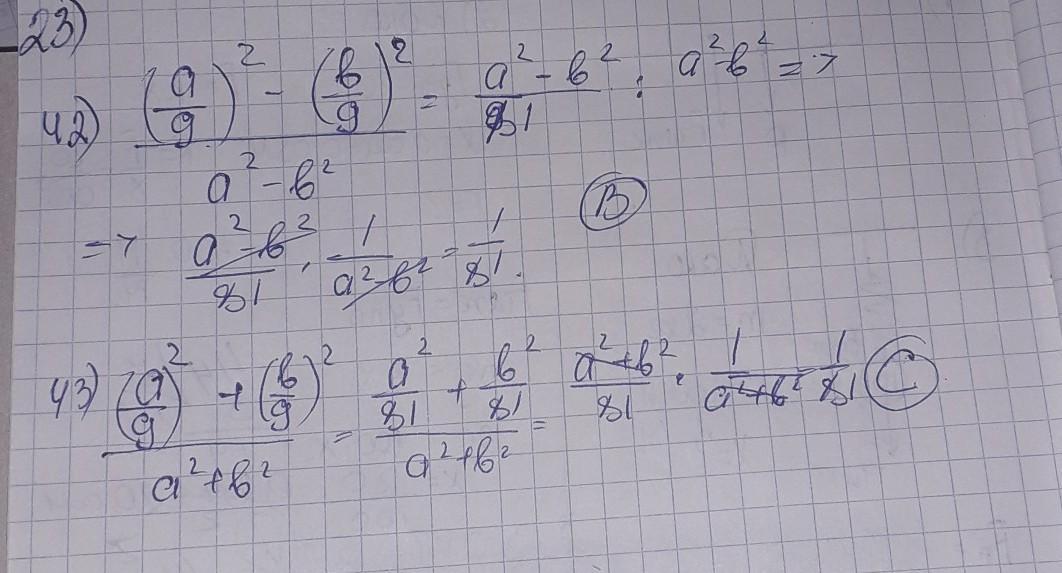 23)
42) ((a/9)² - (b/9)²)/(a² - b²) = (a² - b²)/81 : a² - b² =>
=> (a² - b²)/81 · 1/(a² - b²) = 1/81. (B)
43) ((a/9)² + (b/9)²)/(a² + b²) = (a²/81 + b²/81)/(a² + b²) = (a² + b²)/81 · 1/(a² + b²) = 1/81 (C)